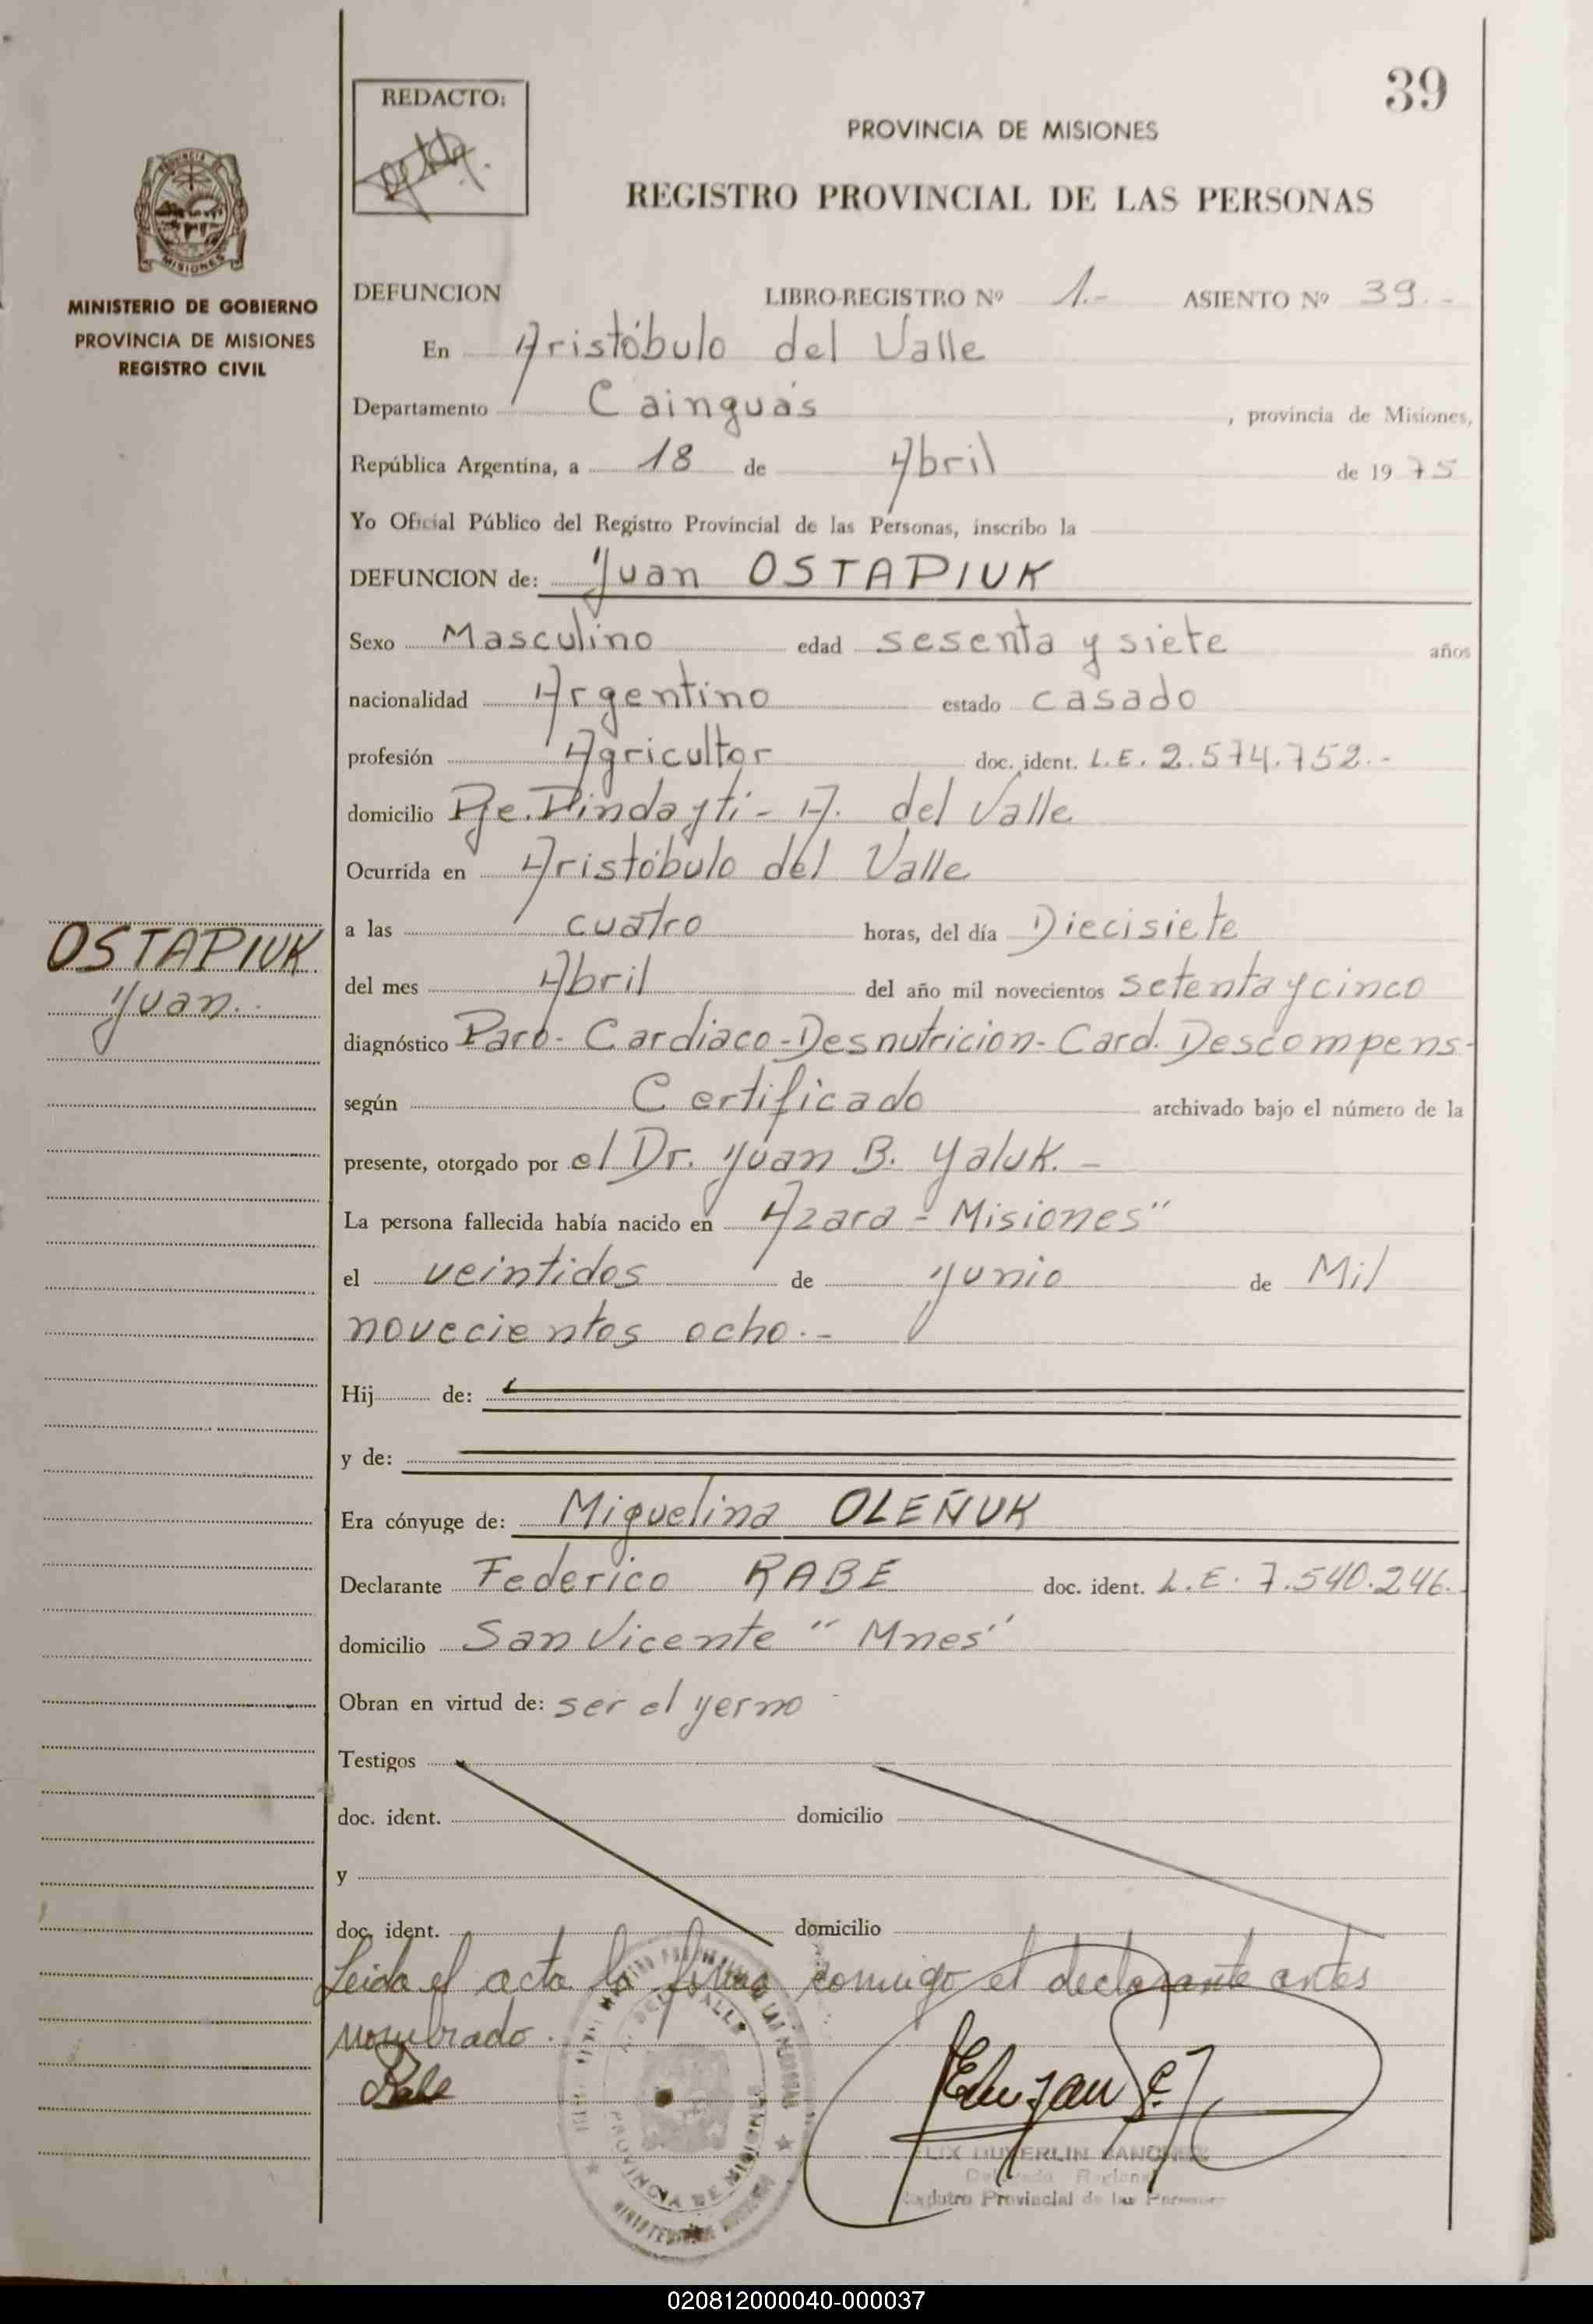 39
REDACTO:
PROVINCIA DE MISIONES
REGISTRO PROVINCIAL DE LAS PERSONAS
MISIONES
MINISTERIO DE GOBIERNO
PROVINCIA DE MISIONES
REGISTRO CIVIL
DEFUNCION LIBRO-REGISTRO Nº 1.- ASIENTO Nº 39.-
En Aristóbulo del Valle
Departamento Cainguás, provincia de Misiones,
República Argentina, a 18 de Abril de 1975
Yo Oficial Público del Registro Provincial de las Personas, inscribo la
DEFUNCION de: Juan OSTAPIUK
Sexo Masculino edad sesenta y siete años
nacionalidad Argentino estado casado
profesión Agricultor doc. ident. L.E. 2.574.752.-
domicilio Pje. Pindayti - A. del Valle
Ocurrida en Aristóbulo del Valle
a las cuatro horas, del día Diecisiete
del mes Abril del año mil novecientos setenta y cinco
diagnóstico Paro - Cardiaco - Desnutricion - Card. Descompens-
según Certificado archivado bajo el número de la
presente, otorgado por el Dr. Juan B. Yaluk.-
La persona fallecida había nacido en Azara - Misiones"
el veintidos de Junio de Mil
novecientos ocho.-
Hij de:
y de:
Era cónyuge de: Miguelina OLEÑUK
Declarante Federico RABE doc. ident. L.E. 7.540.246.
domicilio San Vicente " Mnes"
Obran en virtud de: ser el yerno
Testigos
doc. ident. domicilio
y
doc. ident. domicilio
Leida el acta la firma conmigo el declarante antes
nombrado.
Rabe
OSTAPIUK
Juan.
PROVINCIA DE MISIONES
Registro Provincial de las Personas
020812000040-000037